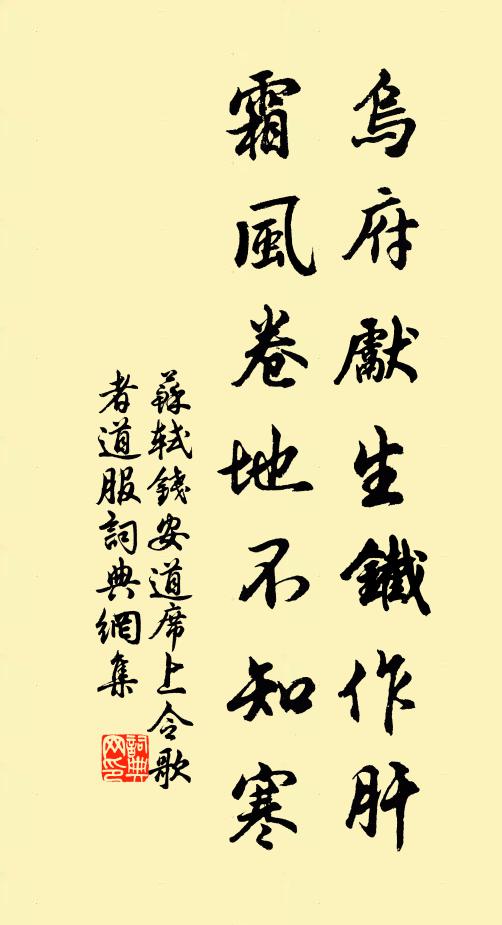 烏府獻生鐵作肝
霜風卷地不知寒
蘇軾錢安道席上令歌
者道服詞典網集
詞典網印